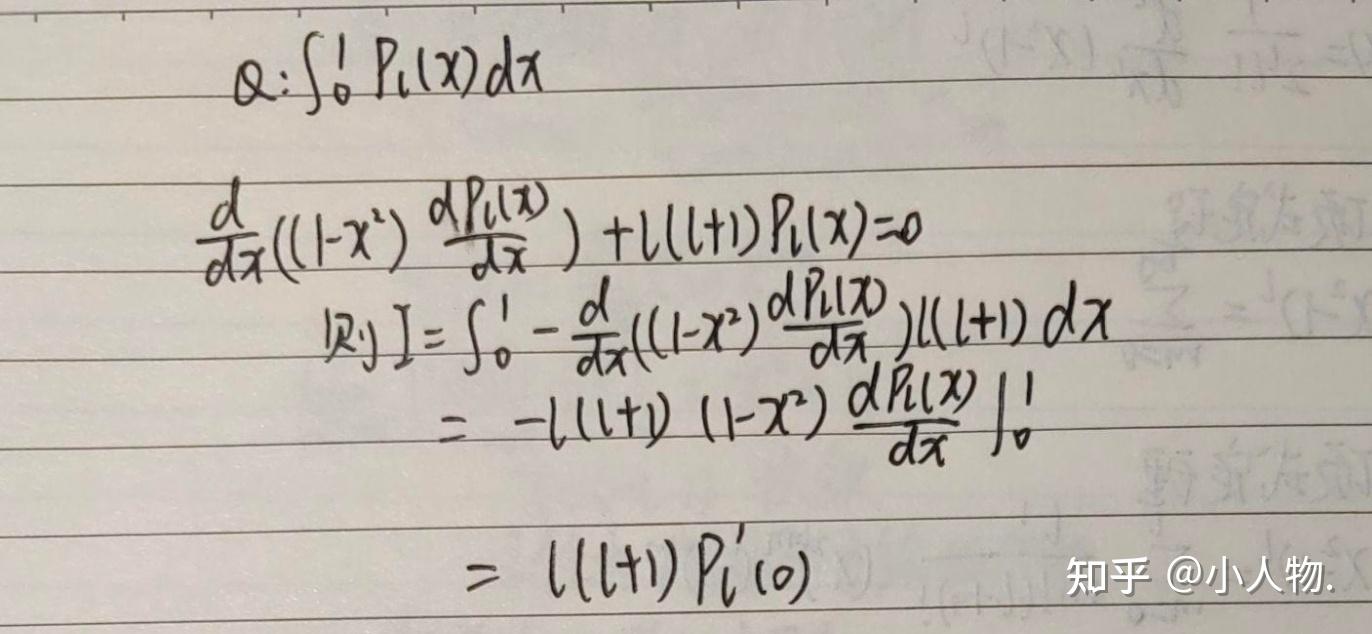 Q: ∫₀¹ Pₗ(x) dx
d/dx((1-x²) dPₗ(x)/dx) + l(l+1) Pₗ(x)=0
则 I = ∫₀¹ - d/dx((1-x²) dPₗ(x)/dx) l(l+1) dx
= -l(l+1) (1-x²) dPₗ(x)/dx |₀¹
= l(l+1) Pₗ'(0)
知乎 @小人物.